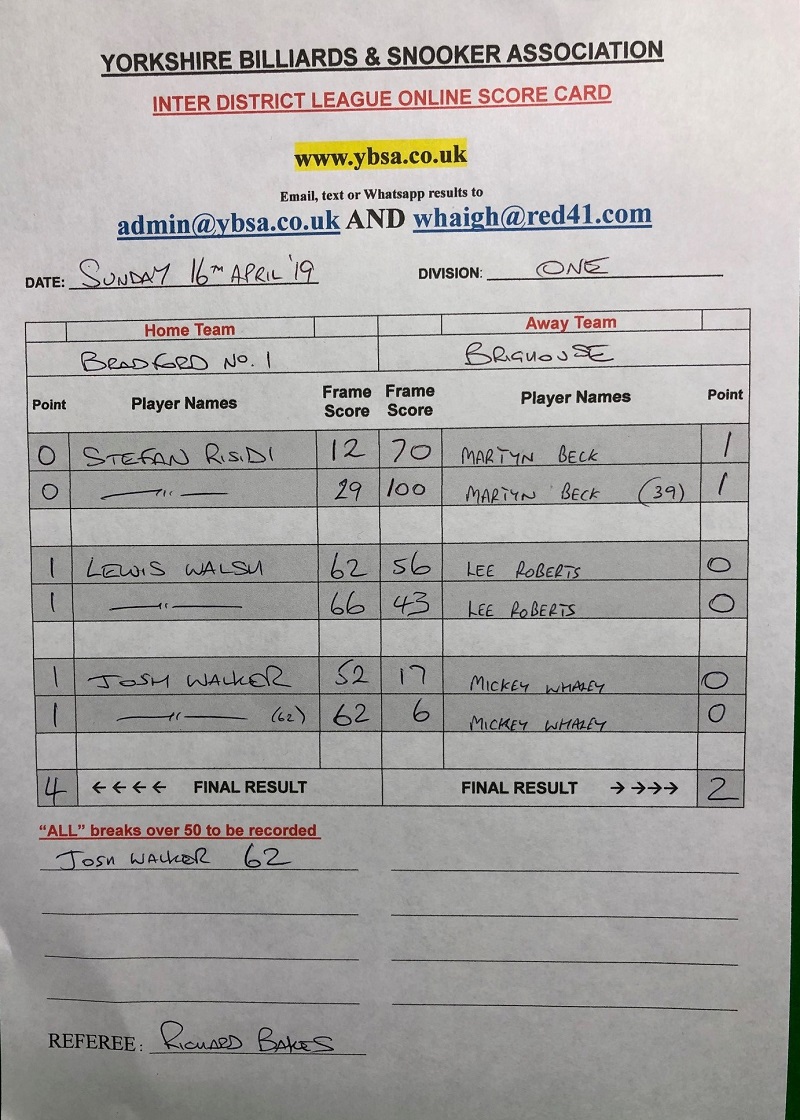 YORKSHIRE BILLIARDS & SNOOKER ASSOCIATION
INTER DISTRICT LEAGUE ONLINE SCORE CARD
www.ybsa.co.uk
Email, text or Whatsapp results to
admin@ybsa.co.uk AND whaigh@red41.com
DATE: SUNDAY 16TH APRIL '19 DIVISION: ONE
Home Team Away Team
BRADFORD NO. 1 BRIGHOUSE
Point Player Names Frame Score Frame Score Player Names Point
0 STEFAN RISIDI 12 70 MARTYN BECK 1
0 —"— 29 100 MARTYN BECK (39) 1
1 LEWIS WALSH 62 56 LEE ROBERTS 0
1 —"— 66 43 LEE ROBERTS 0
1 JOSH WALKER 52 17 MICKEY WHALEY 0
1 —"— (62) 62 6 MICKEY WHALEY 0
4 ←←←← FINAL RESULT FINAL RESULT →→→→ 2
“ALL” breaks over 50 to be recorded
JOSH WALKER 62
REFEREE: RICHARD BAKES